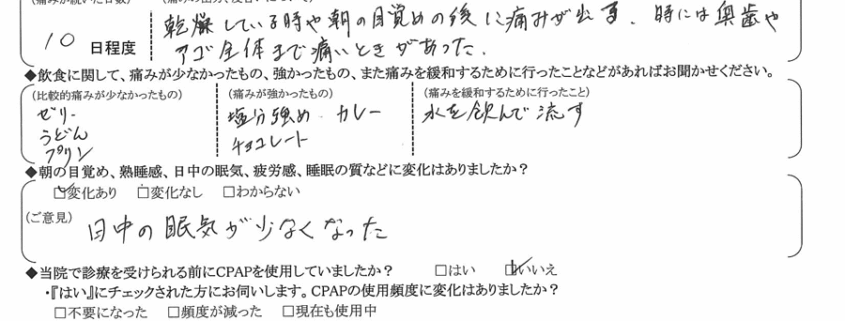 (痛みが続いた日数)
10 日程度
乾燥している時や朝の目覚めの後に痛みが出る．時には奥歯や
アゴ全体まで痛いときがあった．
◆飲食に関して、痛みが少なかったもの、強かったもの、また痛みを緩和するために行ったことなどがあればお聞かせください。
(比較的痛みが少なかったもの)
ゼリー
うどん
プリン
(痛みが強かったもの)
塩分強め カレー
チョコレート
(痛みを緩和するために行ったこと)
水を飲んで流す
◆朝の目覚め、熟睡感、日中の眠気、疲労感、睡眠の質などに変化はありましたか？
☑変化あり □変化なし □わからない
(ご意見)
日中の眠気が少なくなった
◆当院で診療を受けられる前にCPAPを使用していましたか？ □はい ☑いいえ
・『はい』にチェックされた方にお伺いします。CPAPの使用頻度に変化はありましたか？
□不要になった □頻度が減った □現在も使用中